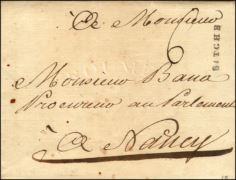 A Monsieur
Monsieur Bana
Procureur au Parlement
A Nancy